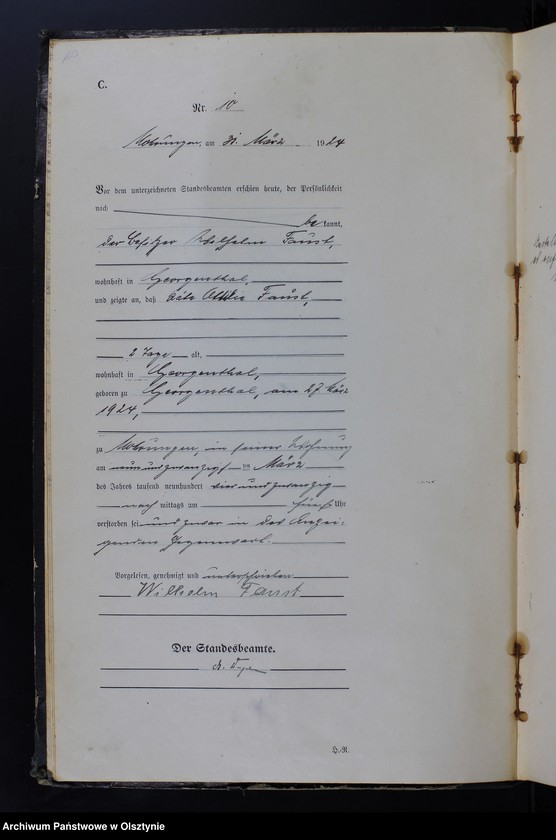 C.
Nr. 10
Mohrungen, am 31. März 1924
Vor dem unterzeichneten Standesbeamten erschien heute, der Persönlichkeit
nach be kannt,
der Besitzer Wilhelm Faust,
wohnhaft in Georgenthal,
und zeigte an, daß Faust,
2 Tage alt,
wohnhaft in Georgenthal,
geboren zu Georgenthal, am 27. März
1924,
zu Mohrungen, in seiner Wohnung
am neunundzwanzigsten März
des Jahres tausend neunhundert vierundzwanzig
nach mittags um fünf Uhr
verstorben sei und zwar in des Anzei-
genden Gegenwart.
Vorgelesen, genehmigt und unterschrieben
Wilhelm Faust
Der Standesbeamte.
H.-R.
Archiwum Państwowe w Olsztynie